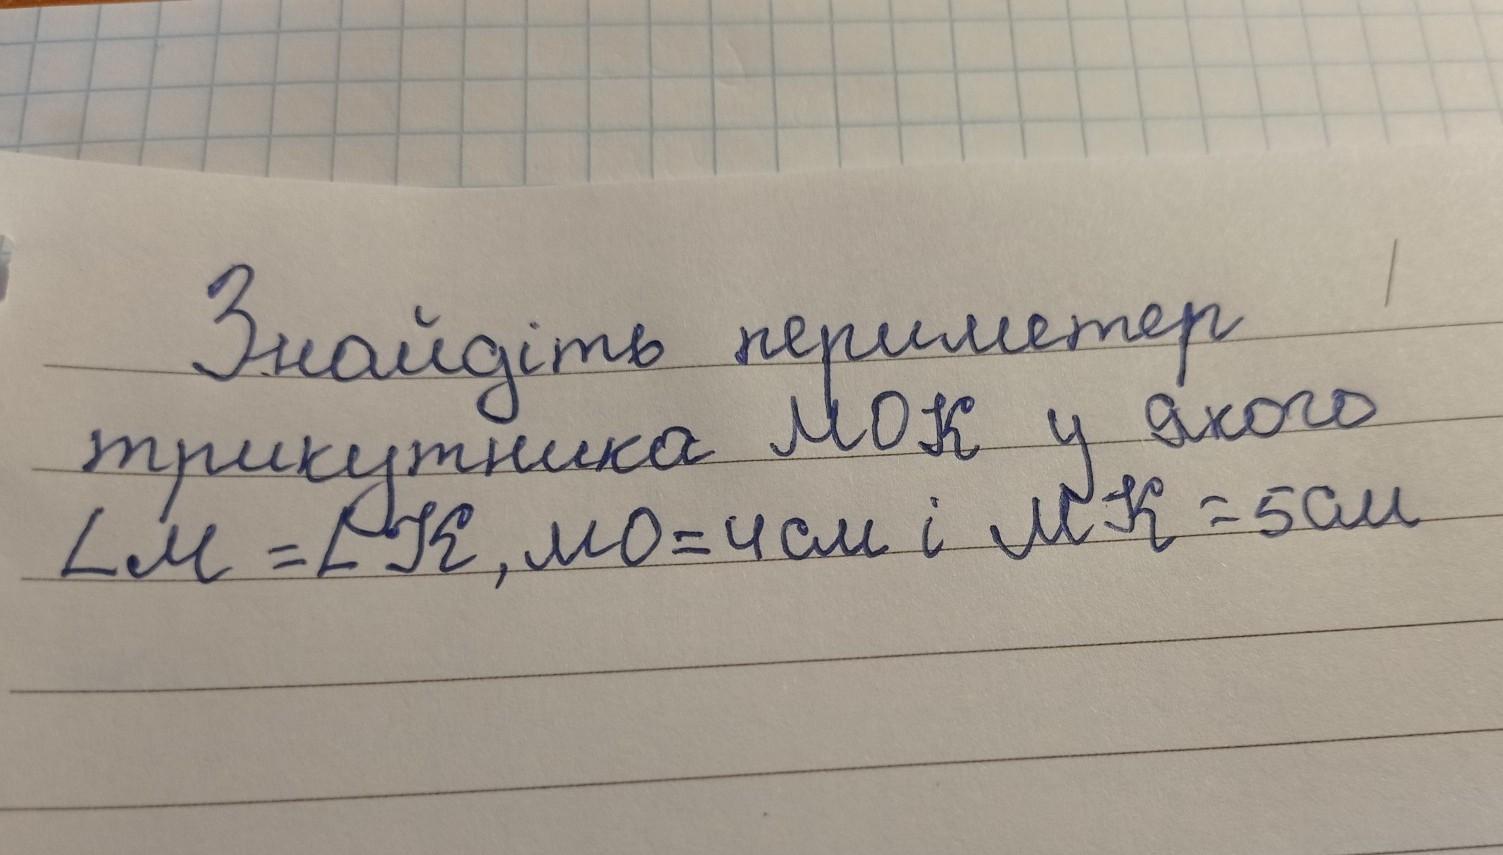 Знайдіть периметер
трикутника МОК у якого
∠М = ∠К, МО = 4 см і МК = 5 см